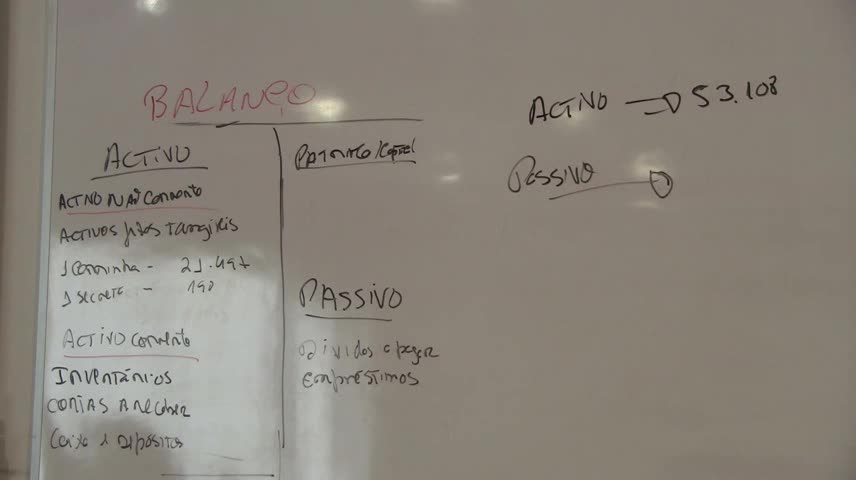 BALANÇO
ACTIVO
ACTIVO NÃO CORRENTE
ACTIVOS fixos TANGÍVEIS
1 carrinha - 21.497
1 secret - 190
ACTIVO CORRENTE
INVENTÁRIOS
CONTAS A RECEBER
Caixa e Depósitos
/Capital
PASSIVO
Dívidas a pagar
Empréstimos
ACTIVO 53.108
PASSIVO